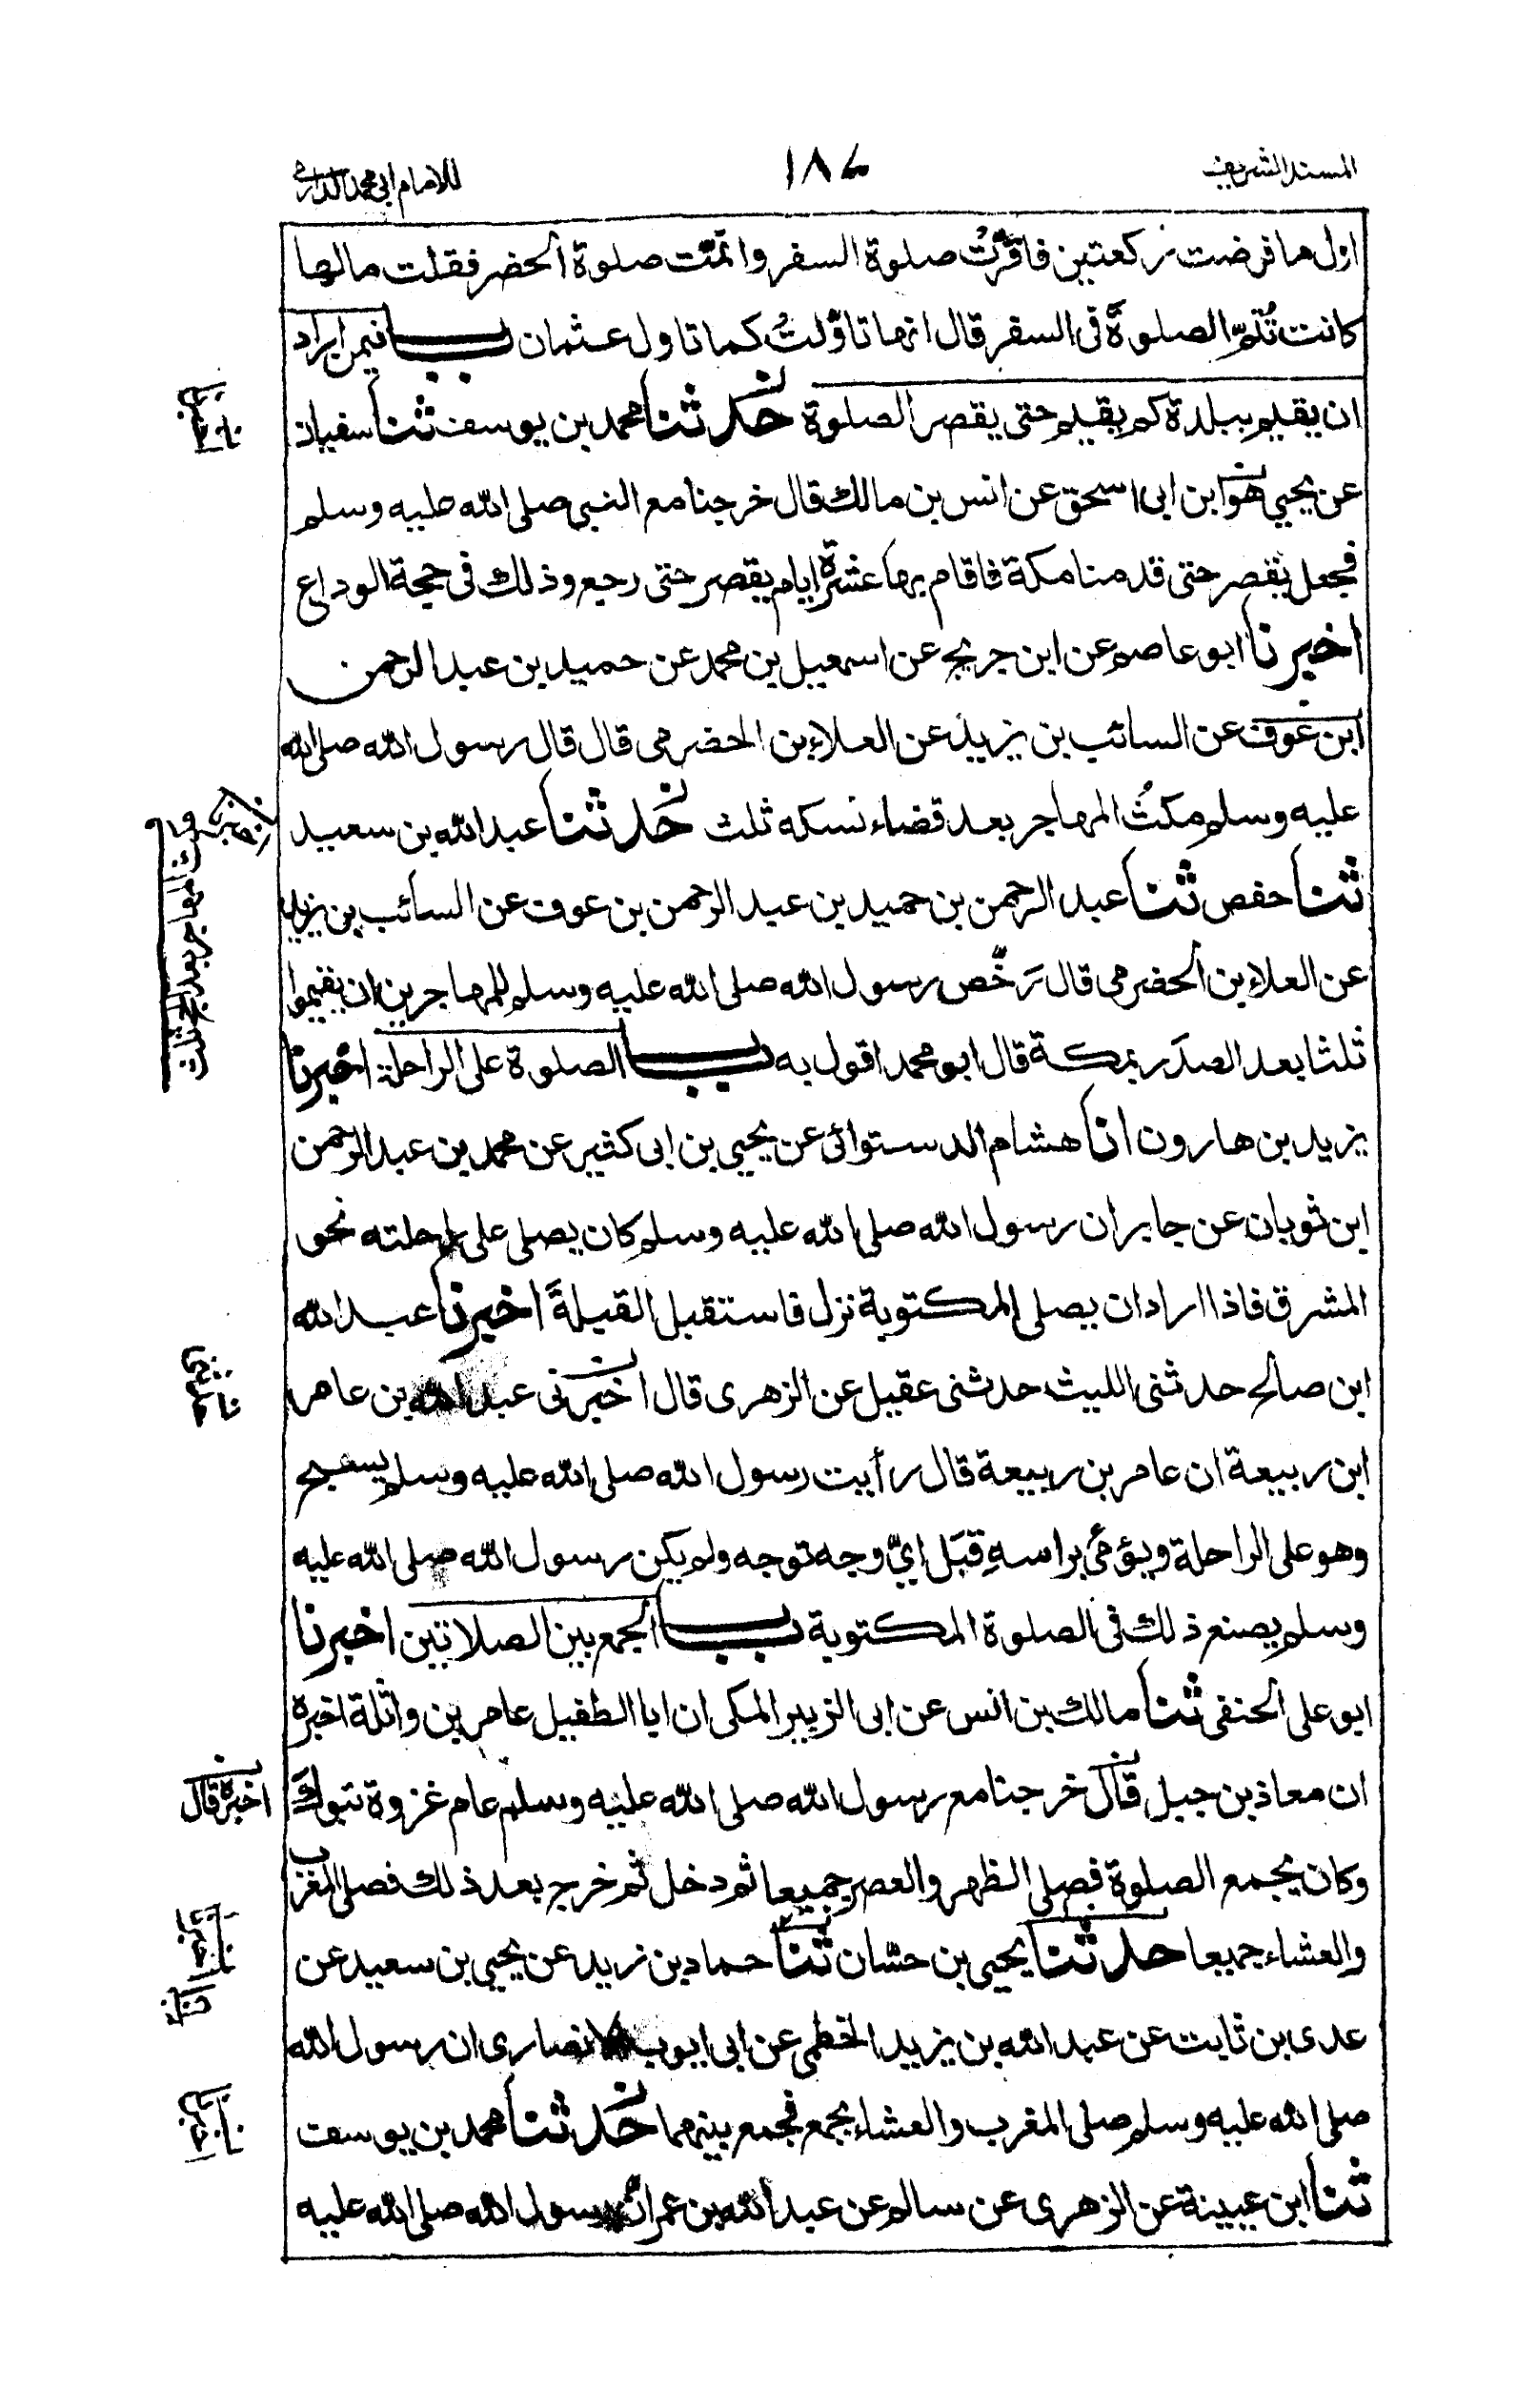 المسند الشريف
١٨٧
للامام ابی محمد الدارمی
اول ما فرضت ركعتين فاقرّت صلوة السفر واتمّت صلوة الحضر فقلت مالها
كانت تُتمّ الصلوةَ فی السفر قال انها تاوّلتْ كما تاول عثمان باب فيمن اراد
ان يقيم ببلدة كم يقيم حتى يقصر الصلوة حدثنا محمد بن يوسف ثنا سفيان
عن يحيي هو ابن ابی اسحق عن انس بن مالك قال خرجنا مع النبی صلی الله عليه وسلم
فجعل يقصر حتی قدمنا مكة فاقام بها عشرة ايام يقصر حتی رجع وذلك فی حجة الوداع
اخبرنا ابو عاصم عن ابن جريج عن اسمعيل بن محمد عن حميد بن عبد الرحمن
ابن عوف عن السائب بن يزيد عن العلاء بن الحضرمی قال قال رسول الله صلی الله
عليه وسلم مكثُ المهاجر بعد قضاء نسكه ثلث حدثنا عبد الله بن سعيد
ثنا حفص ثنا عبد الرحمن بن حميد بن عبد الرحمن بن عوف عن السائب بن يزيد
عن العلاء بن الحضرمی قال رَخّص رسول الله صلی الله عليه وسلم للمهاجرين ان يقيموا
ثلثا بعد الصدَر بمكة قال ابو محمد اقول به باب الصلوة علی الراحلة اخبرنا
يزيد بن هارون انا هشام الدستوائی عن يحيی بن ابی كثير عن محمد بن عبد الرحمن
ابن ثوبان عن جابر ان رسول الله صلی الله عليه وسلم كان يصلی علی راحلته نحو
المشرق فاذا اراد ان يصلی المكتوبة نزل فاستقبل القبلةَ اخبرنا عبد الله
ابن صالح حدثنی الليث حدثنی عقيل عن الزهری قال اخبرنی عبد الله بن عامر
ابن ربيعة ان عامر بن ربيعة قال رأيت رسول الله صلی الله عليه وسلم يسبح
وهو علی الراحلة ويؤمیُ براسهِ قبَل ایّ وجه توجه ولم يكن رسول الله صلی الله عليه
وسلم يصنع ذلك فی الصلوة المكتوبة باب الجمع بين الصلاتين اخبرنا
ابو علی الحنفی ثنا مالك بن انس عن ابی الزبير المكی ان ابا الطفيل عامر بن واثلة اخبره
ان معاذ بن جبل قال خرجنا مع رسول الله صلی الله عليه وسلم عام غزوة تبوكَ
اخبره قال
وكان يجمع الصلوة فصلی الظهر والعصر جميعا ثم دخل ثم خرج بعد ذلك فصلی المغرب
والعشاء جميعا حدثنا يحيی بن حسّان ثنا حماد بن زيد عن يحيی بن سعيد عن
عدی بن ثابت عن عبد الله بن يزيد الخطمی عن ابی ايوب الانصاری ان رسول الله
صلی الله عليه وسلم صلی المغرب والعشاء بجمع فجمع بينهما حدثنا محمد بن يوسف
ثنا ابن عيينة عن الزهری عن سالم عن عبد الله بن عمر ان رسول الله صلی الله عليه